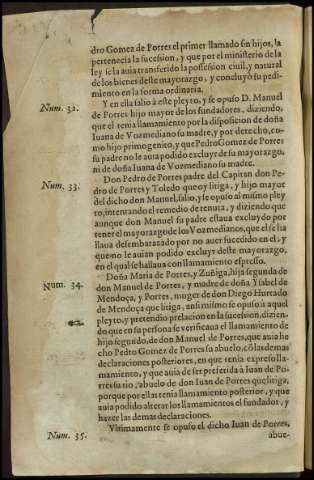 dro Gomez de Porres el primer llamado sin hijos, la
pertenecia la sucession, y que por el ministerio de la
ley se la auia transferido la possession civil, y natural
de los bienes deste mayorazgo, y concluyò su pedi-
mento en la forma ordinaria.
Num. 32.
Y en ella saliò à este pleyto, y se opuso D. Manuel
de Porres hijo mayor de los fundadores, diziendo,
que el tenia llamamiento por la disposicion de doña
Iuana de Vozmediano su madre, y por derecho, co-
mo hijo primogenito, y que Pedro Gomez de Porres
su padre no le auia podido excluyr de su mayorazgo,
ni de doña Iuana de Vozmediano su madre.
Num. 33.
Don Pedro de Porres padre del Capitan don Pe-
dro de Porres y Toledo que oy litiga, y hijo mayor
del dicho don Manuel, salio, y se opuso al mismo pley
to, intentando el remedio de tenuta, y diziendo que
aunque don Manuel su padre estaua excluydo por
tener el mayorazgo de los Vozmedianos, que el se ha
llaua desembaraçado por no auer sucedido en el, y
que no le auian podido excluyr deste mayorazgo,
en el qual se hallaua con llamamiento espresso.
Num. 34.
Doña Maria de Porres, y Zuñiga, hija segunda de
don Manuel de Porres, y madre de doña Ysabel de
Mendoça, y Porres, muger de don Diego Hurtado
de Mendoça que litiga, ansi mismo se opuso à aquel
pleyto, y pretendiò prelacion en la sucession, dizien-
do que en su persona se verificaua el llamamiento de
hijo segundo, de don Manuel de Porres, que auia he
cho Pedro Gomez de Porres su abuelo, cõ las demas
declaraciones posteriores, en que tenia expresso lla-
mamiento, y que auia de ser preferida à Iuan de Po-
rres su tio, abuelo de don Iuan de Porres que litiga,
porque por ellas tenia llamamiento posterior, y que
auia podido alterar los llamamientos el fundador, y
hazer las demas declaraciones.
Num. 35.
Vltimamente se opuso el dicho Iuan de Porres,
abue-